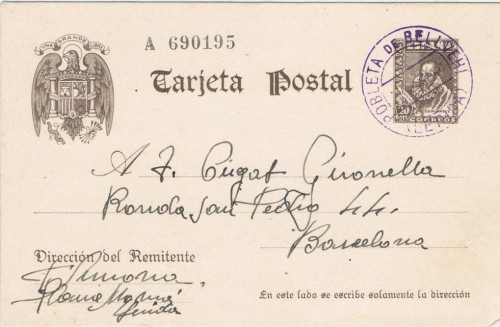 UNA GRANDE LIBRE
A 690195
Tarjeta Postal
POBLETA DE BELLVEHI (LERIDA)
20
CORREOS
A J. Puget Gironella
Ronda San Pedro 44.
Barcelona
Dirección del Remitente
Lerida
En este lado se escribe solamente la dirección